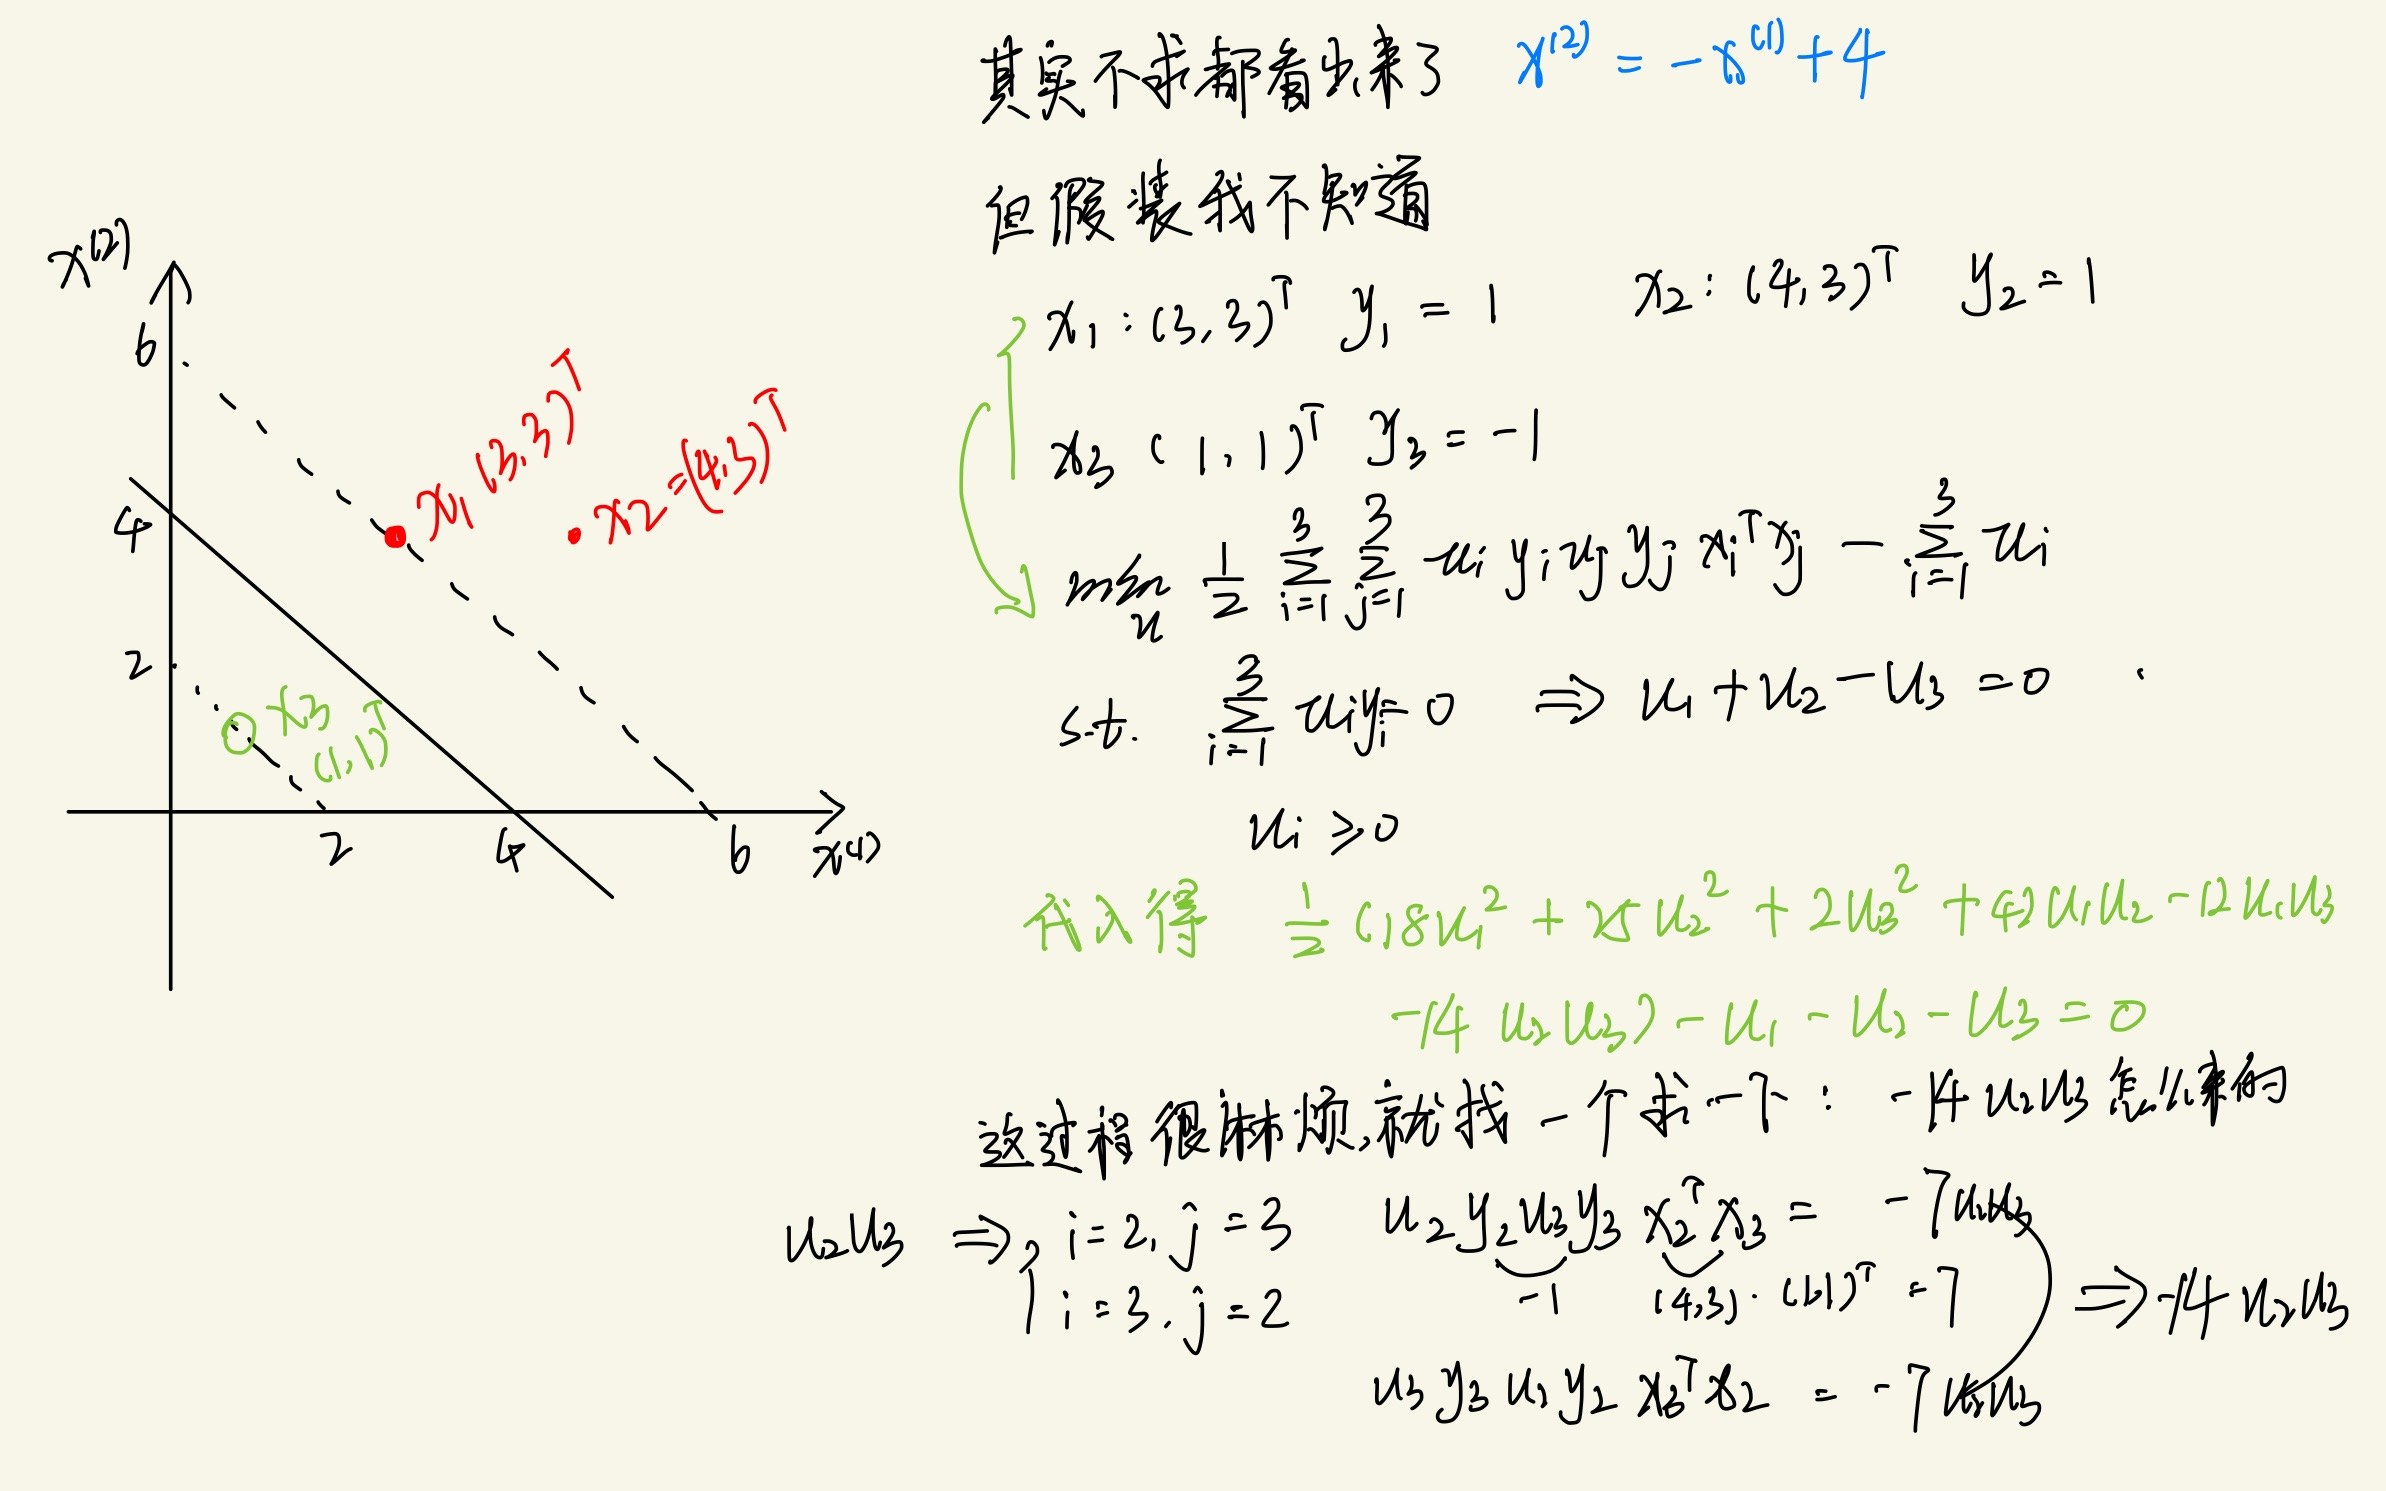 其实不求都看出来了 x⁽²⁾ = -x⁽¹⁾ + 4
但假装我不知道
x₁ : (3,3)ᵀ y₁ = 1 x₂ : (4,3)ᵀ y₂ = 1
x₃ (1,1)ᵀ y₃ = -1
min_u 1/2 Σ_{i=1}^{3} Σ_{j=1}^{3} uᵢ yᵢ uⱼ yⱼ xᵢᵀ xⱼ - Σ_{i=1}^{3} uᵢ
s.t. Σ_{i=1}^{3} uᵢyᵢ = 0 ⇒ u₁ + u₂ - u₃ = 0
uᵢ ≥ 0
代入得 1/2 (18u₁² + 25u₂² + 2u₃² + 42u₁u₂ - 12u₁u₃
-14 u₂u₃) - u₁ - u₂ - u₃ = 0
这过程很麻烦,就找一个求一下: -14 u₂u₃ 怎么来的
u₂u₃ ⇒ i=2, j=3 u₂y₂u₃y₃ x₂ᵀx₃ = -7u₂u₃
-1 (4,3)·(1,1)ᵀ = 7
i=3, j=2 ⇒ -14 u₂u₃
u₃y₃u₂y₂ x₃ᵀx₂ = -7u₂u₃
x⁽²⁾
6
4
2
x₁ (3,3)ᵀ
x₂ = (4,3)ᵀ
x₃
(1,1)ᵀ
2 4 6 x⁽¹⁾